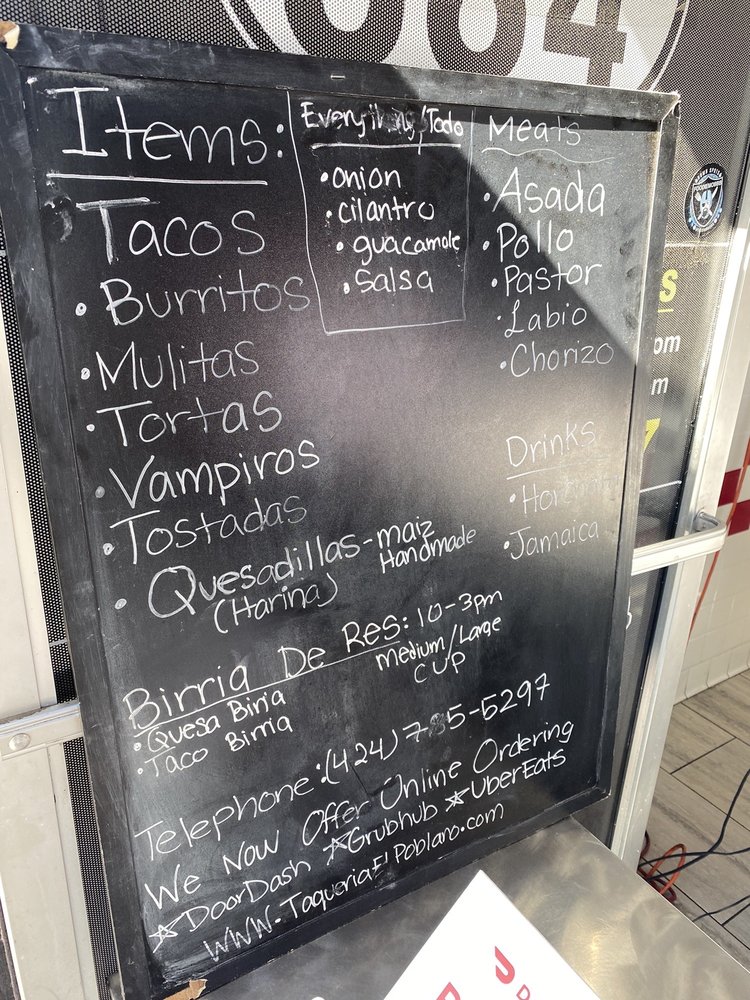 084
Items:
Tacos
• Burritos
• Mulitas
• Tortas
• Vampiros
• Tostadas
• Quesadillas-maiz
(Harina) Handmade
Everything/Todo
• onion
• cilantro
• guacamole
• Salsa
Meats
• Asada
• Pollo
• Pastor
• Labio
• Chorizo
Drinks
• Jamaica
Birria De Res: 10-3pm
Medium/Large
CUP
• Quesa Birria
• Taco Birria
Telephone: (424) 785-5297
We Now Offer Online Ordering
☆DoorDash ☆Grubhub ☆UberEats
WWW.TaqueriaElPoblano.com
s
om
m
7
J